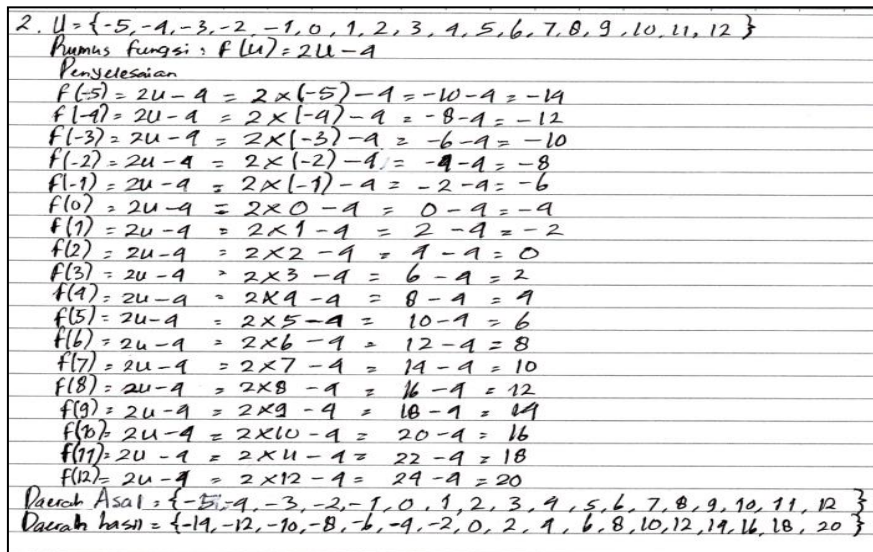 2. U = {-5, -4, -3, -2, -1, 0, 1, 2, 3, 4, 5, 6, 7, 8, 9, 10, 11, 12 }
Rumus fungsi : f(u) = 2u - 4
Penyelesaian
f(-5) = 2u - 4 = 2×(-5) - 4 = -10 - 4 = -14
f(-4) = 2u - 4 = 2×(-4) - 4 = -8 - 4 = -12
f(-3) = 2u - 4 = 2×(-3) - 4 = -6 - 4 = -10
f(-2) = 2u - 4 = 2×(-2) - 4 = -4 - 4 = -8
f(-1) = 2u - 4 = 2×(-1) - 4 = -2 - 4 = -6
f(0) = 2u - 4 = 2×0 - 4 = 0 - 4 = -4
f(1) = 2u - 4 = 2×1 - 4 = 2 - 4 = -2
f(2) = 2u - 4 = 2×2 - 4 = 4 - 4 = 0
f(3) = 2u - 4 = 2×3 - 4 = 6 - 4 = 2
f(4) = 2u - 4 = 2×4 - 4 = 8 - 4 = 4
f(5) = 2u - 4 = 2×5 - 4 = 10 - 4 = 6
f(6) = 2u - 4 = 2×6 - 4 = 12 - 4 = 8
f(7) = 2u - 4 = 2×7 - 4 = 14 - 4 = 10
f(8) = 2u - 4 = 2×8 - 4 = 16 - 4 = 12
f(9) = 2u - 4 = 2×9 - 4 = 18 - 4 = 14
f(10) = 2u - 4 = 2×10 - 4 = 20 - 4 = 16
f(11) = 2u - 4 = 2×11 - 4 = 22 - 4 = 18
f(12) = 2u - 4 = 2×12 - 4 = 24 - 4 = 20
Daerah Asal = {-5, -4, -3, -2, -1, 0, 1, 2, 3, 4, 5, 6, 7, 8, 9, 10, 11, 12 }
Daerah hasil = {-14, -12, -10, -8, -6, -4, -2, 0, 2, 4, 6, 8, 10, 12, 14, 16, 18, 20 }